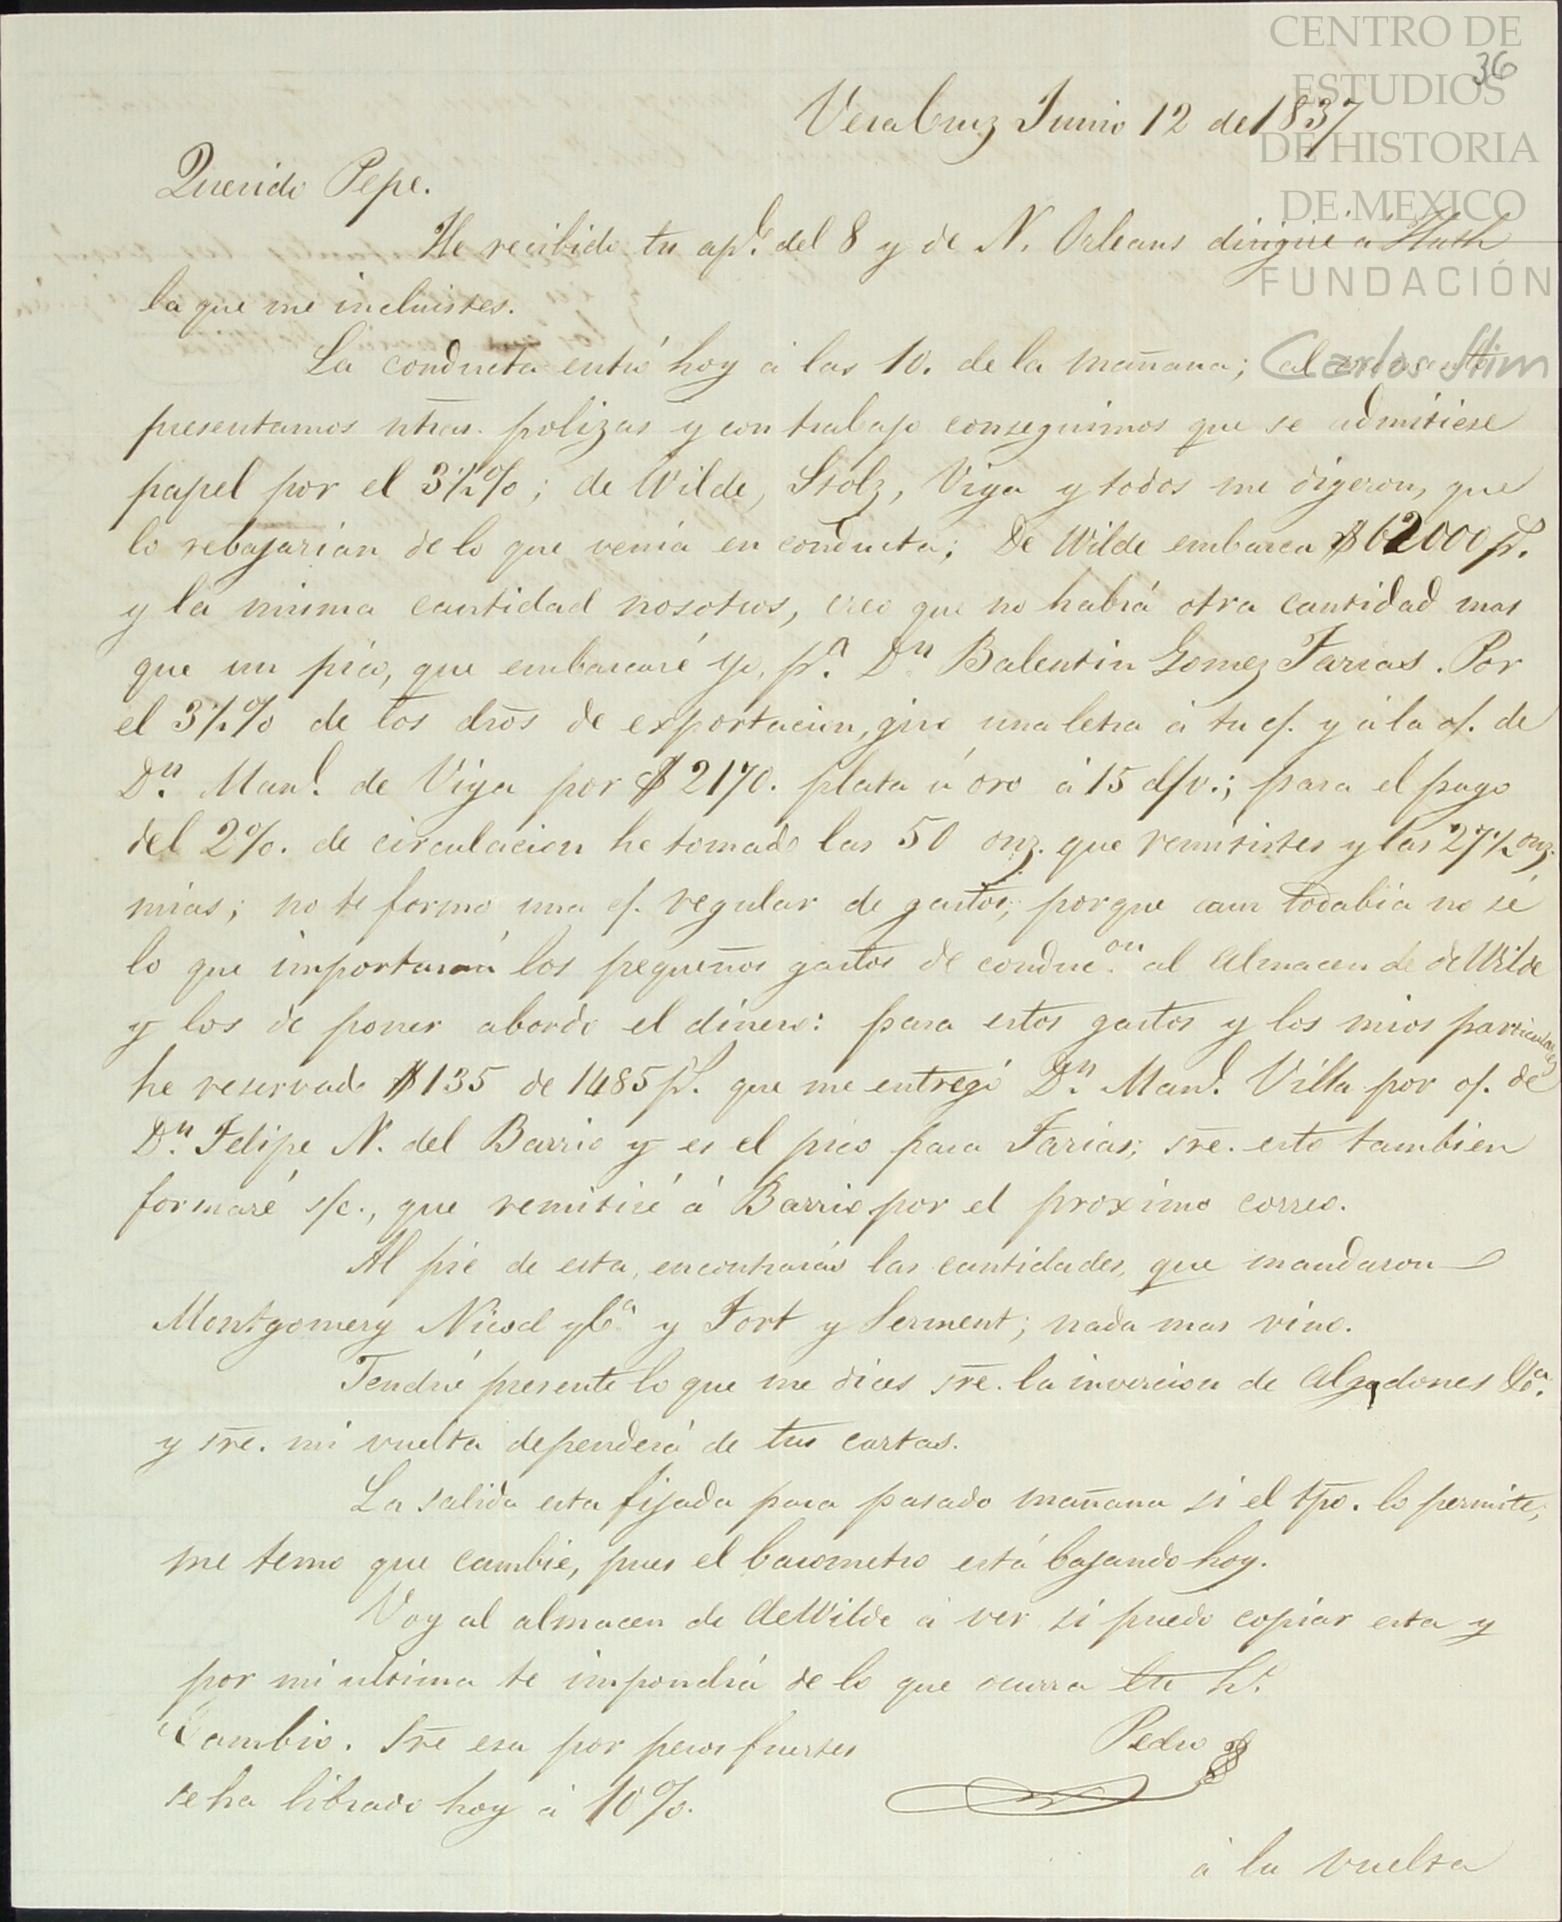 CENTRO DE
ESTUDIOS
DE HISTORIA
DE MEXICO
FUNDACIÓN
Carlos Slim
36
VeraCruz Junio 12 de 1837
Querido Pepe.
He recibido tu ap.^e del 8 y de N. Orleans dirigiré á
la que me incluistes.
La conducta entró hoy á las 10. de la mañana; al
presentamos ntras. polizas y con trabajo conseguimos que se admitiese
papel por el 3½%; de Wilde, Stolz, Viya y todos me digeron, que
lo rebajarian de lo que venia en conducta; De Wilde embarca $62000 p.^s
y la misma cantidad nosotros, creo que no habrá otra cantidad mas
que un pico, que embarcaré yo, p.^a D.^n Balentin Gomez Farias. Por
el 3½% de los dros de exportacion, giro una letra á tu c/. y á la c/. de
D.^n Man.^l de Viya por $2170. plata ú oro á 15 d/v.; para el pago
del 2%. de circulacion he tomado las 50 onz. que remitistes y las 27½ onz.
mias; no te formo una c/. regular de gastos, porque aun todabia no sé
lo que importarán los pequeños gastos de conduc.^on al almacen de de Wilde
y los de poner abordo el dinero: para estos gastos y los mios particulares
he reservado $135 de 1485 p.^s que me entregó D.^n Man.^l Villa por o/. de
D.^n Felipe N. del Barrio y es el pico para Farias; sre. esto tambien
formaré s/c., que remitiré á Barrio por el proximo correo.
Al pie de esta, encontrarás las cantidades, que mandaron
Montgomery Nicod y C.^a y Fort y Serment; nada mas vino.
Tendré presente lo que me dices sre. la invercion de algodones &.^a
y sre. mi vuelta dependerá de tus cartas.
La salida esta fijada para pasado mañana si el tpo. lo permite,
me temo que cambie, pues el barometro está bajando hoy.
Voy al almacen de deWilde á ver si puedo copiar esta y
por mi ultima te impondrá de lo que ocurra tu h.^o
Cambio. Sre esa por pesos fuertes
Pedro
se ha librado hoy á 10%.
á la vuelta